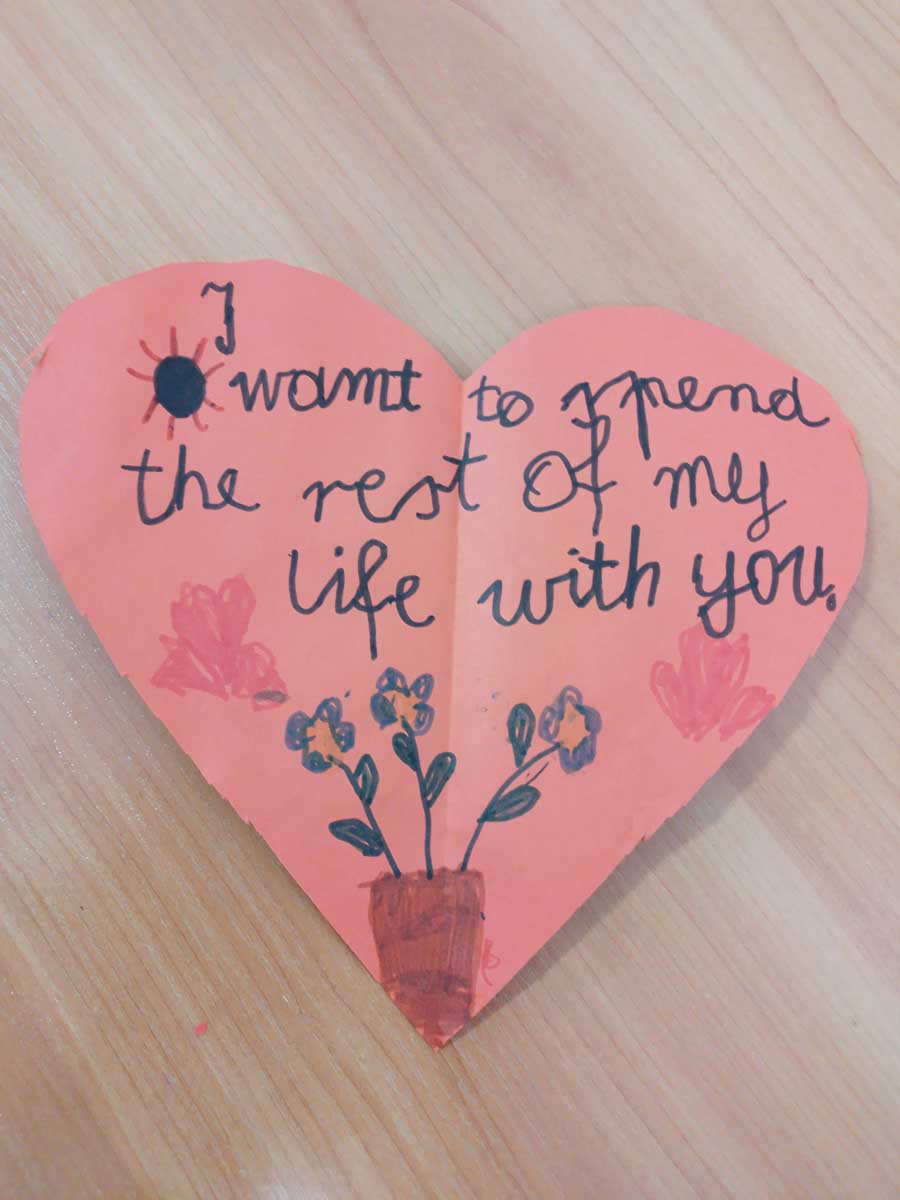 I
want to spend
the rest of my
life with you.